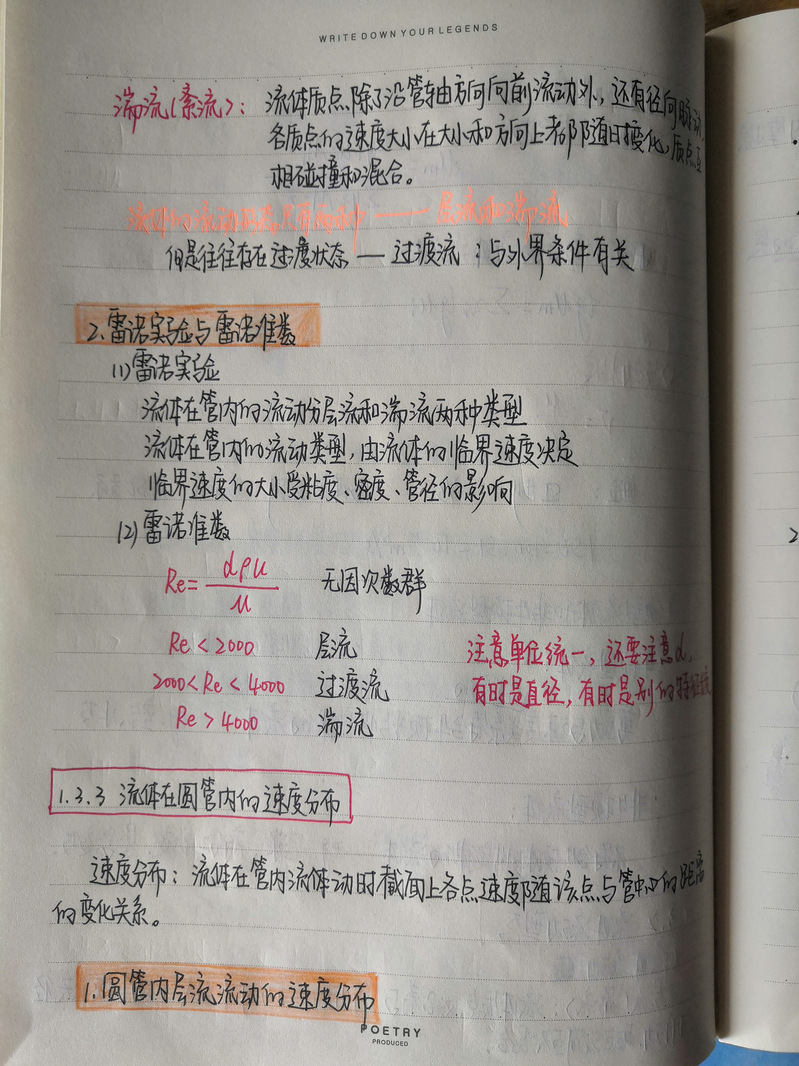 WRITE DOWN YOUR LEGENDS
湍流(紊流): 流体质点除了沿管轴方向向前流动外,还有径向脉动,
各质点的速度大小在大小和方向上都随时变化,质点互
相碰撞和混合。
流体的流动状态只有两种——层流和湍流
但是往往存在过渡状态—过渡流:与外界条件有关
2.雷诺实验与雷诺准数
(1)雷诺实验
流体在管内的流动分层流和湍流两种类型
流体在管内的流动类型,由流体的临界速度决定
临界速度的大小受粘度、密度、管径的影响
(2)雷诺准数
Re=dρu/μ 无因次数群
Re<2000 层流 注意单位统一,还要注意d,
2000<Re<4000 过渡流 有时是直径,有时是别的特征
Re>4000 湍流
1.3.3 流体在圆管内的速度分布
速度分布:流体在管内流体动时截面上各点速度随该点与管中心的距离
的变化关系。
1.圆管内层流流动的速度分布
POETRY
PRODUCED